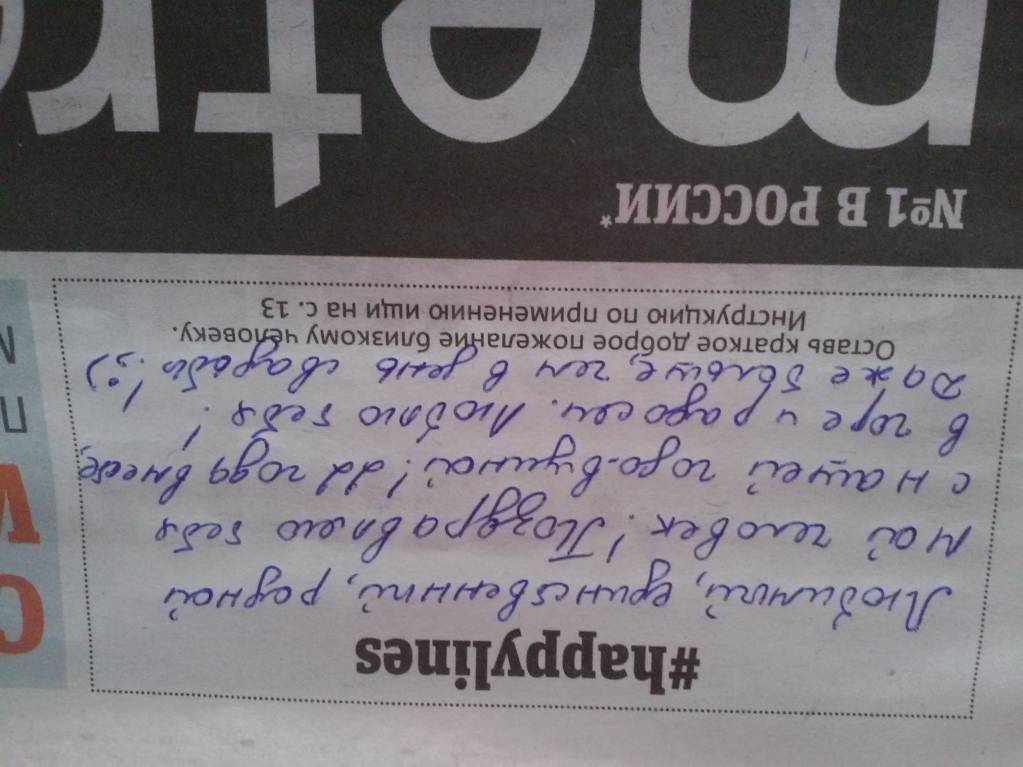 #happylines
Любимый, единственный, родной
мой человек! Поздравляю тебя
с нашей годо-вщиной! 22 года вместе,
в горе и радости. Люблю тебя!
даже больше, чем в день свадьбы! :)
Оставь краткое доброе пожелание близкому человеку.
Инструкцию по применению ищи на с. 13
№1 В РОССИИ*
metr